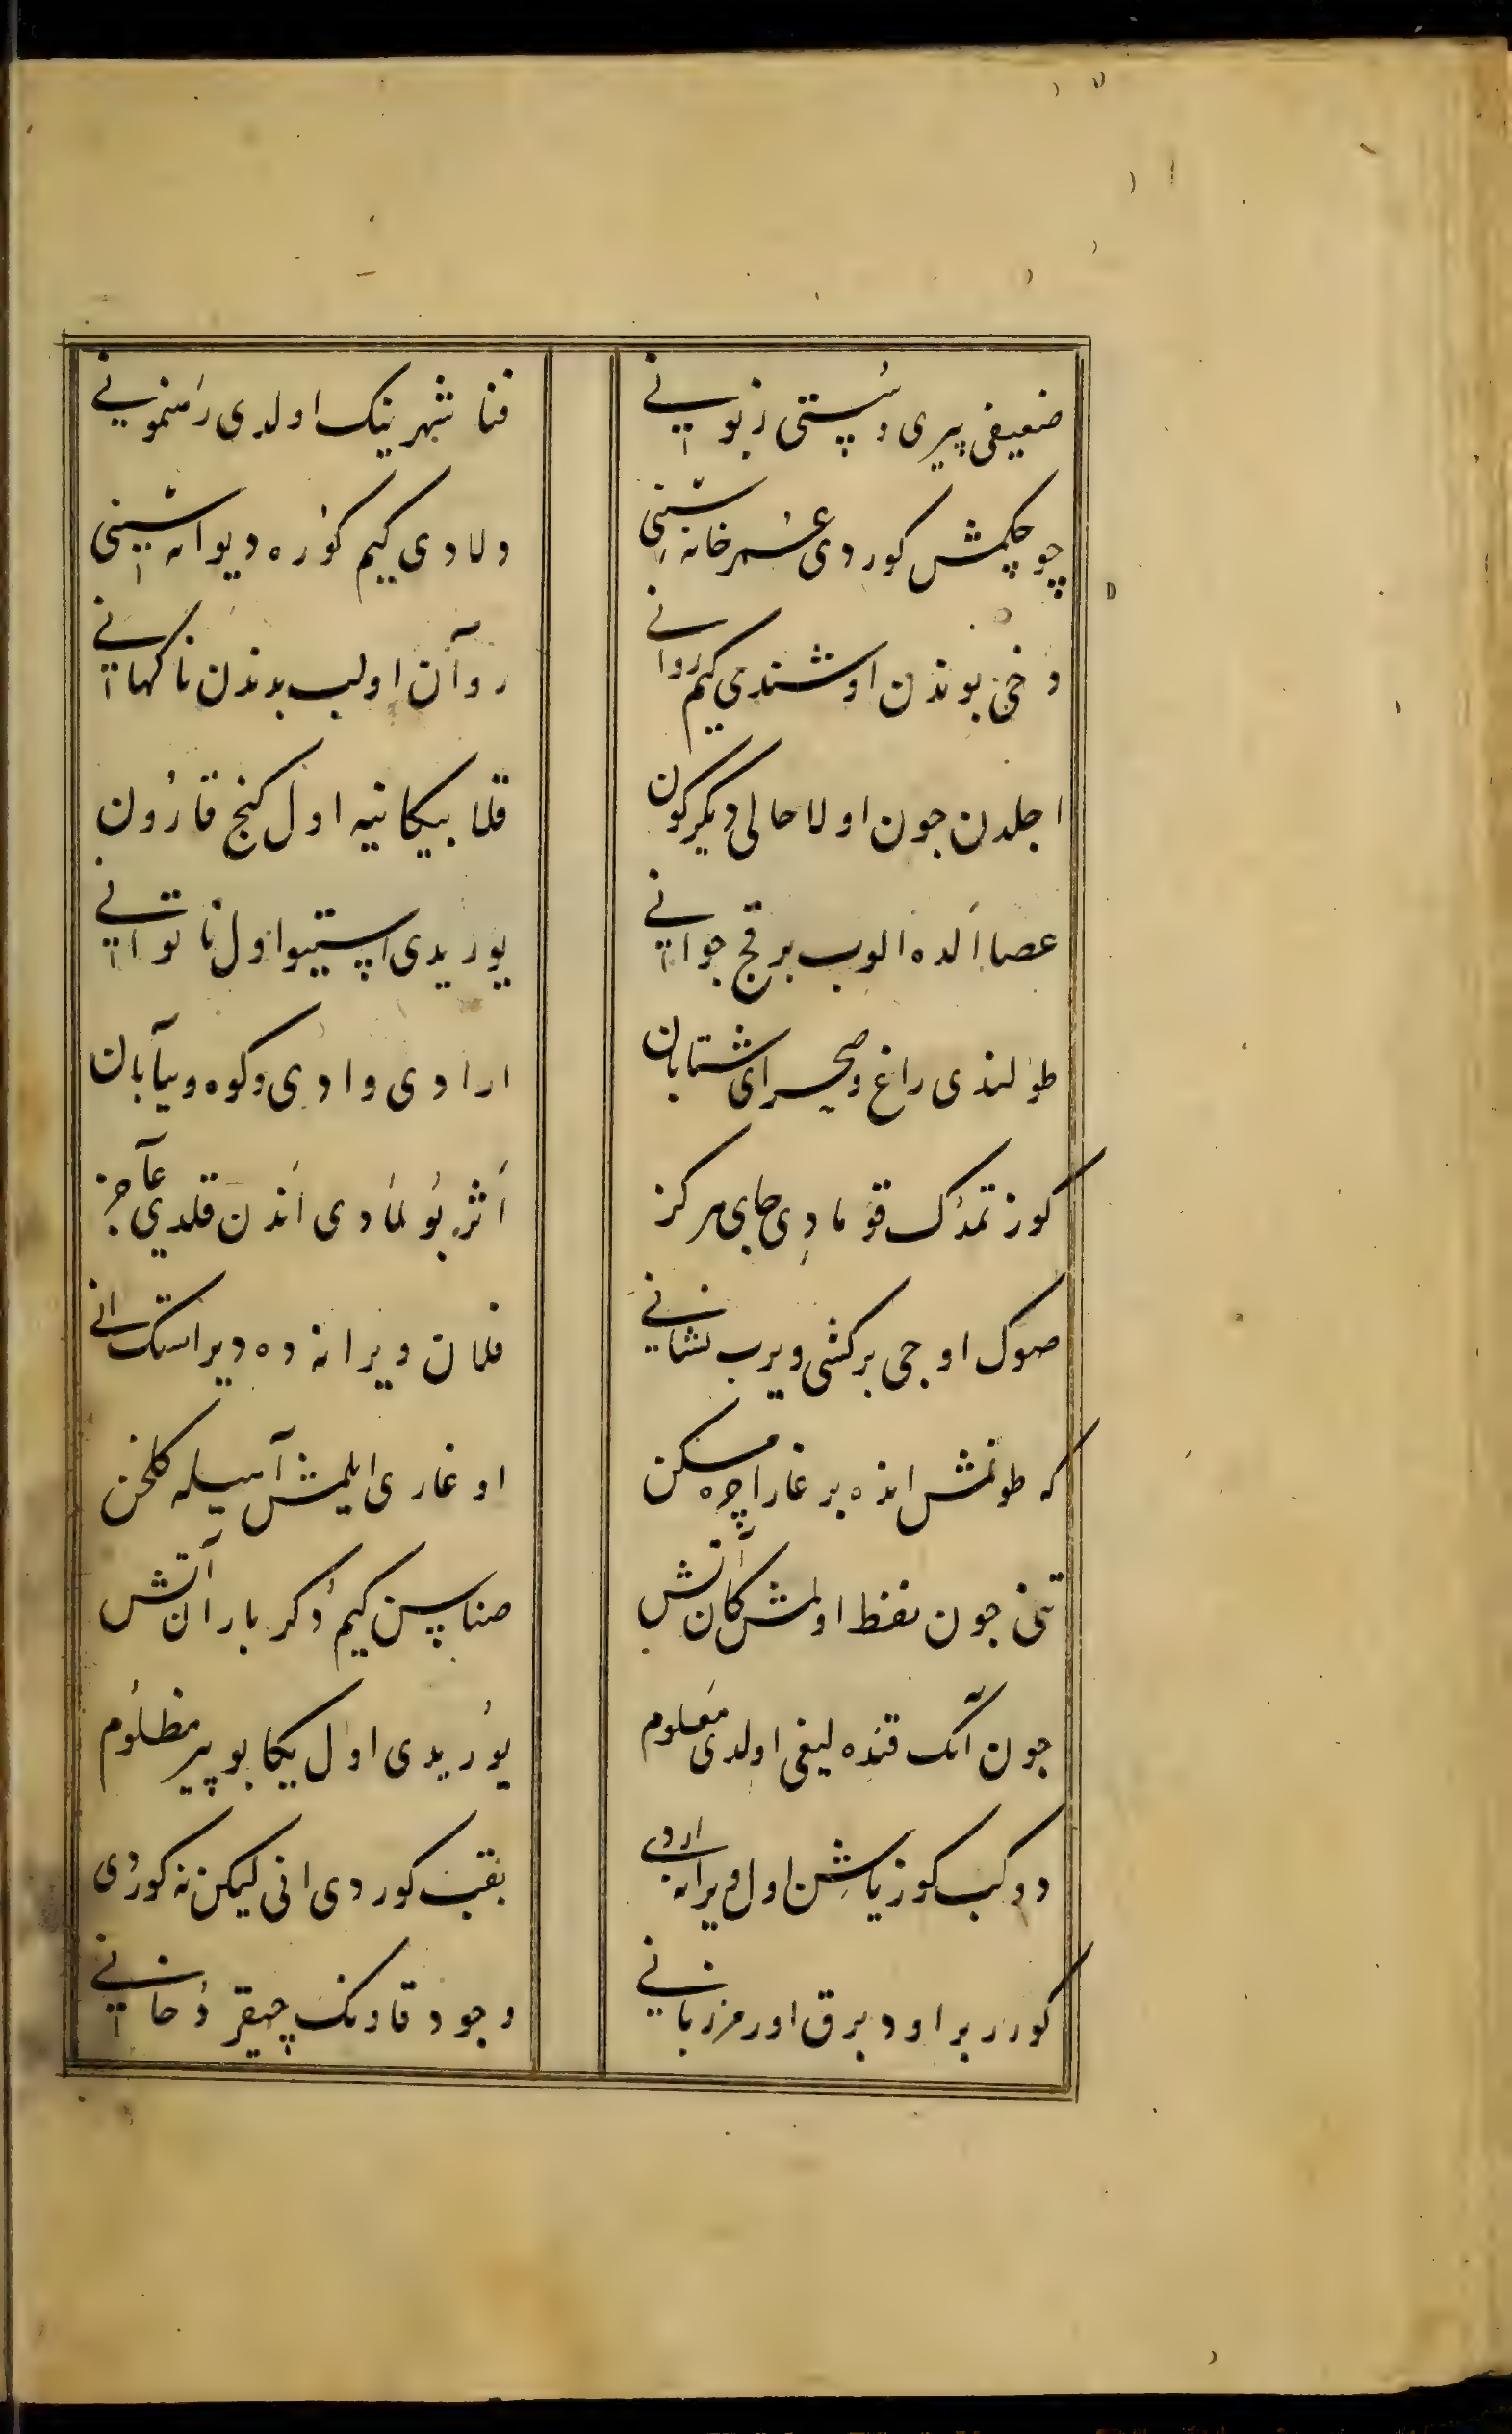 ضعیفی پیری و سستی زبونی فنا شهرینک اولدی رهنمونی
چو چکمش کوردی عمر خانه سنی دلادی کیم کوره دیوانه سینی
دخی بوندن اوشندی کیم روانی روان اولب بدندن ناکهانی
اجلدن جون اولا حالی دیکرکون قلا بیکانیه اول کنج قارون
عصا الده الوب بر قج جوانی یوریدی استیو اول ناتوانی
طولندی راغ و صحرای شتابان ارادی وادی و کوه و بیابان
کوزتمدک قومادی جای مرکز اثر بولمادی اندن قلدی عاجز
صوک اوجی بر کشی ویرب نشانی فلان ویرانه ده دیر استک انی
که طوتمش انده بر غار اچره مسکن او غاری ایلمش آهیله کلخن
تنی جون نفط اولمش کان آتش صناسن کیم دکر باران آتش
جون آنک قنده لیغی اولدی معلوم یوریدی اول یکا بو پیر مظلوم
دوکب کوز یاشن اول ویرانه اردی بقب کوردی انی لیکن نه کوردی
کورر بر اود برق اورمز زبانی وجود قاونک چیقر دخانی